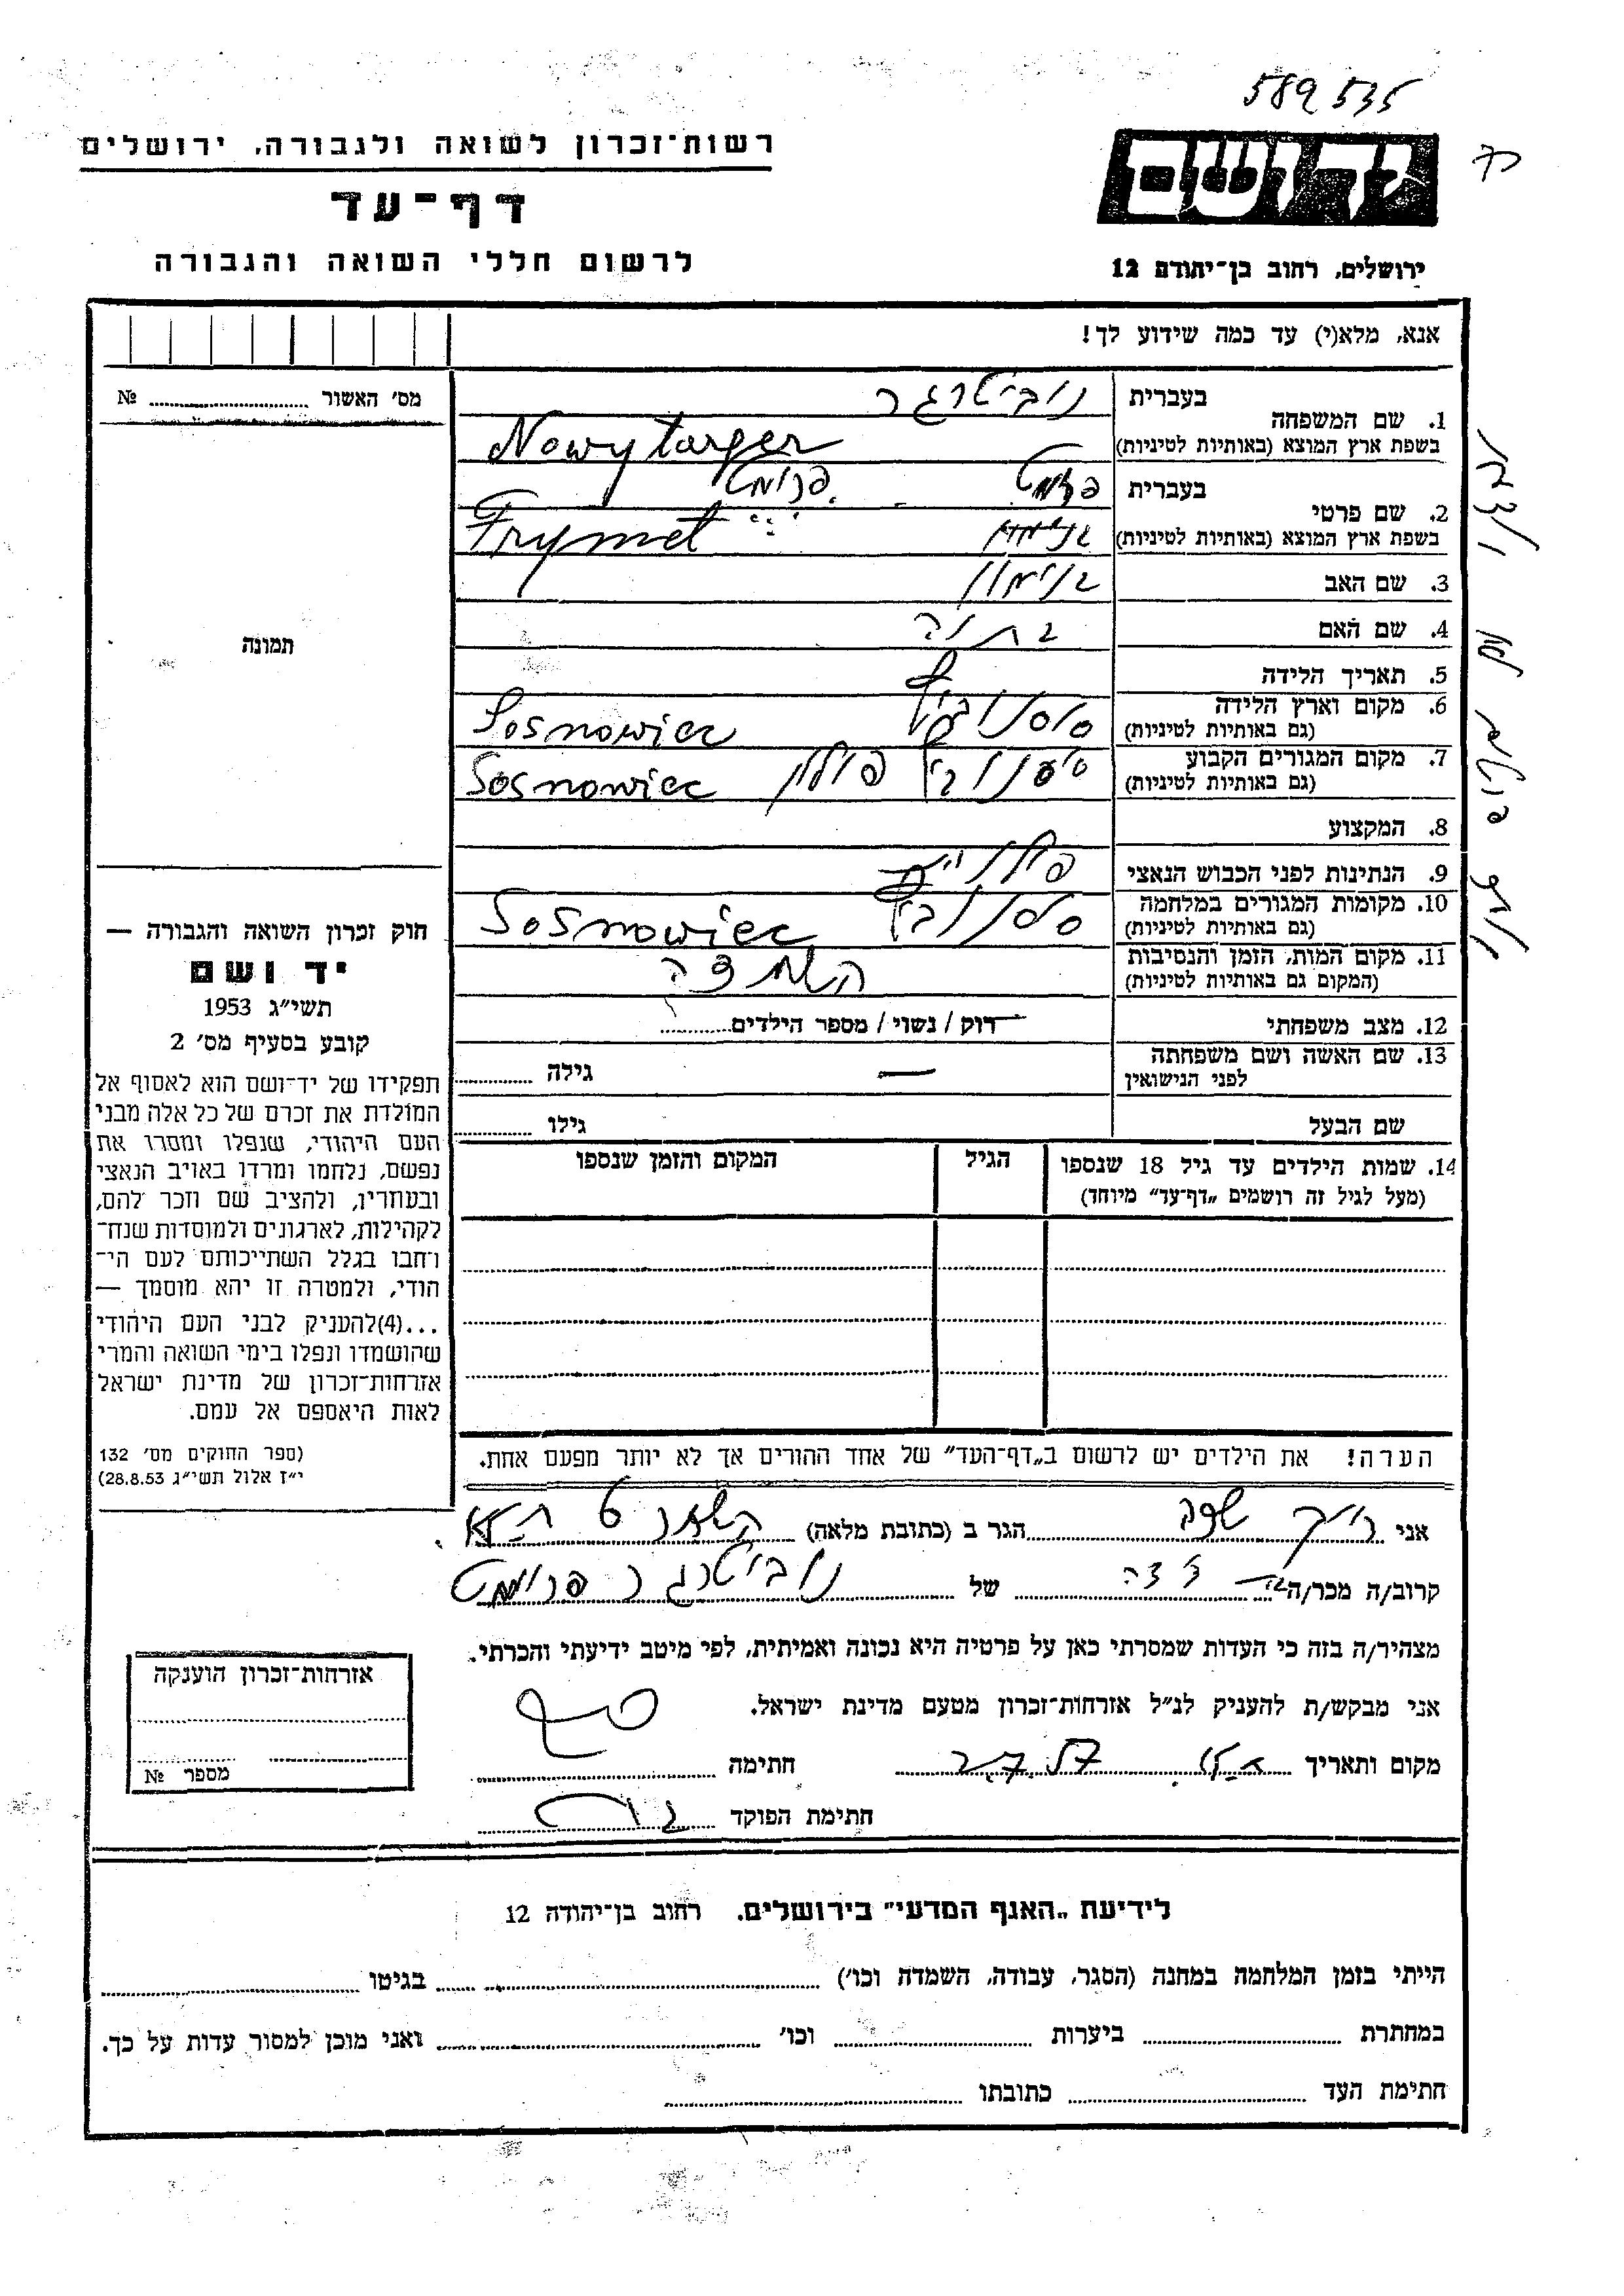 589 535
רשות־זכרון לשואה ולגבורה, ירושלים
יד ושם
דף־עד
לרשום חללי השואה והגבורה
ירושלים, רחוב בן־יהודה 12
אנא, מלא(י) עד כמה שידוע לך!
מס׳ האשור № 
1. שם המשפחה
בעברית נוביטרגר
בשפת ארץ המוצא (באותיות לטיניות) Nowytarger
2. שם פרטי
בעברית פרומט
בשפת ארץ המוצא (באותיות לטיניות) Frymet
3. שם האב בנימין
4. שם האם
5. תאריך הלידה
6. מקום וארץ הלידה סוסנוביץ Sosnowiec
(גם באותיות לטיניות)
7. מקום המגורים הקבוע סוסנוביץ פולין Sosnowiec
(גם באותיות לטיניות)
8. המקצוע
9. הנתינות לפני הכבוש הנאצי פולנית
10. מקומות המגורים במלחמה סוסנוביץ Sosnowiec
(גם באותיות לטיניות)
11. מקום המות, הזמן והנסיבות השמדה
(המקום גם באותיות לטיניות)
12. מצב משפחתי רוק / נשוי / מספר הילדים
13. שם האשה ושם משפחתה גילה
לפני הנישואין
שם הבעל גילו
תמונה
חוק זכרון השואה והגבורה —
יד ושם
תשי״ג 1953
קובע בסעיף מס׳ 2
תפקידו של יד־ושם הוא לאסוף אל
המולדת את זכרם של כל אלה מבני
העם היהודי, שנפלו ומסרו את
נפשם, נלחמו ומרדו באויב הנאצי
ובעוזריו, ולהציב שם וזכר להם,
לקהילות, לארגונים ולמוסדות שנח־
רחבו בגלל השתייכותם לעם הי־
הודי, ולמטרה זו יהא מוסמך —
...(4)להעניק לבני העם היהודי
שהושמדו ונפלו בימי השואה והמרי
אזרחות־זכרון של מדינת ישראל
לאות היאספם אל עמם.
(ספר החוקים מס׳ 132
י״ז אלול תשי״ג 28.8.53)
14. שמות הילדים עד גיל 18 שנספו הגיל המקום והזמן שנספו
(מעל לגיל זה רושמים „דף־עד״ מיוחד)
הערה! את הילדים יש לרשום ב„דף־העד״ של אחד ההורים אך לא יותר מפעם אחת.
אני הגר ב (כתובת מלאה)
קרוב/ה מכר/ה של נוביטרגר פרומט
מצהיר/ה בזה כי העדות שמסרתי כאן על פרטיה היא נכונה ואמיתית, לפי מיטב ידיעתי והכרתי.
אני מבקש/ת להעניק לנ״ל אזרחות־זכרון מטעם מדינת ישראל.
מקום ותאריך חתימה
חתימת הפוקד
אזרחות־זכרון הוענקה
מספר №
לידיעת „האגף המדעי״ בירושלים. רחוב בן־יהודה 12
הייתי בזמן המלחמה במחנה (הסגר, עבודה, השמדה וכו׳) בגיטו
במחתרת ביערות וכו׳ ואני מוכן למסור עדות על כך.
חתימת העד כתובתו